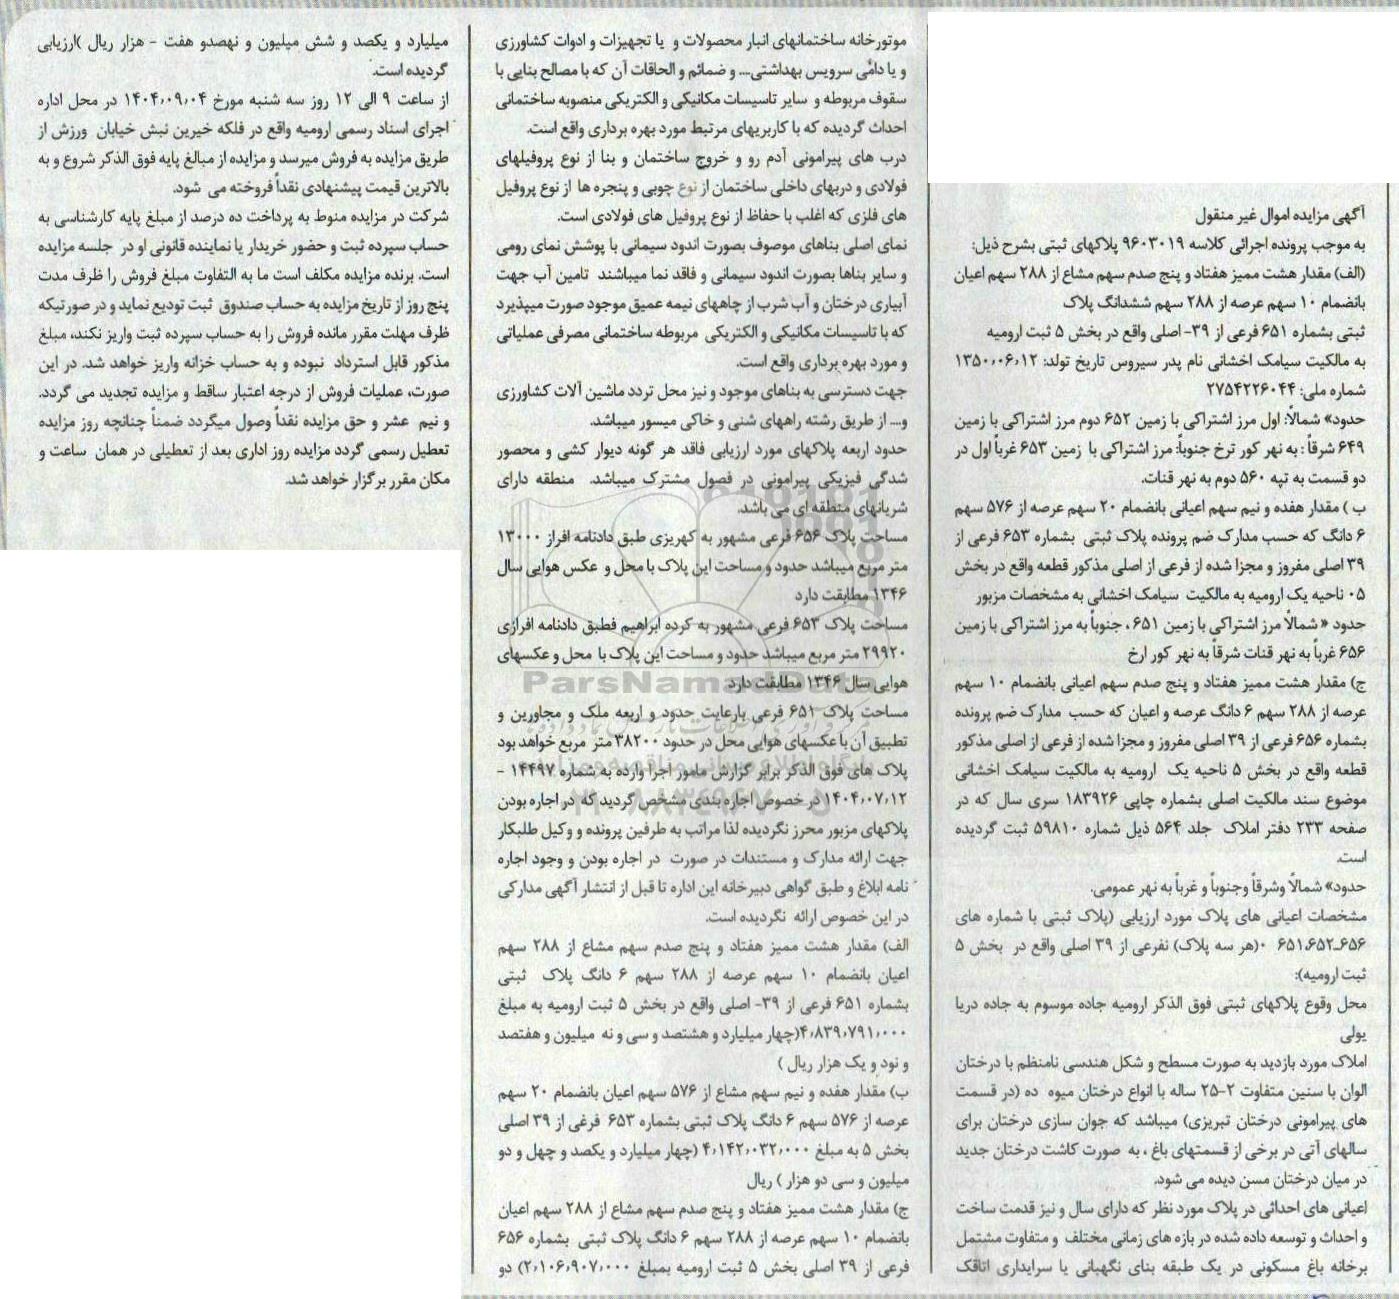 آگهی مزایده اموال غیر منقول
به موجب پرونده اجرائی کلاسه ۹۶۰۳۰۱۹ پلاکهای ثبتی بشرح ذیل:
(الف) مقدار هشت ممیز هفتاد و پنج صدم سهم مشاع از ۲۸۸ سهم اعیان
بانضمام ۱۰ سهم عرصه از ۲۸۸ سهم ششدانگ پلاک
ثبتی بشماره ۶۵۱ فرعی از ۳۹- اصلی واقع در بخش ۵ ثبت ارومیه
به مالکیت سیامک اخشانی نام پدر سیروس تاریخ تولد: ۱۳۵۰،۰۶،۱۲
شماره ملی: ۲۷۵۴۲۲۶۰۴۴
حدود» شمالاً: اول مرز اشتراکی با زمین ۶۵۲ دوم مرز اشتراکی با زمین
۶۴۹ شرقاً : به نهر کور ترخ جنوباً: مرز اشتراکی با زمین ۶۵۳ غرباً اول در
دو قسمت به تپه ۵۶۰ دوم به نهر قنات.
ب ) مقدار هفده و نیم سهم اعیانی بانضمام ۲۰ سهم عرصه از ۵۷۶ سهم
۶ دانگ که حسب مدارک ضم پرونده پلاک ثبتی بشماره ۶۵۳ فرعی از
۳۹ اصلی مفروز و مجزا شده از فرعی از اصلی مذکور قطعه واقع در بخش
۰۵ ناحیه یک ارومیه به مالکیت سیامک اخشانی به مشخصات مزبور
حدود « شمالاً مرز اشتراکی با زمین ۶۵۱ ، جنوباً به مرز اشتراکی با زمین
۶۵۶ غرباً به نهر قنات شرقاً به نهر کور ارخ
ج) مقدار هشت ممیز هفتاد و پنج صدم سهم اعیانی بانضمام ۱۰ سهم
عرصه از ۲۸۸ سهم ۶ دانگ عرصه و اعیان که حسب مدارک ضم پرونده
بشماره ۶۵۶ فرعی از ۳۹ اصلی مفروز و مجزا شده از فرعی از اصلی مذکور
قطعه واقع در بخش ۵ ناحیه یک ارومیه به مالکیت سیامک اخشانی
موضوع سند مالکیت اصلی بشماره چاپی ۱۸۳۹۲۶ سری سال که در
صفحه ۲۳۳ دفتر املاک جلد ۵۶۴ ذیل شماره ۵۹۸۱۰ ثبت گردیده
است.
حدود» شمالاً وشرقاً وجنوباً و غرباً به نهر عمومی.
مشخصات اعیانی های پلاک مورد ارزیابی (پلاک ثبتی با شماره های
۶۵۱،۶۵۲ـ۶۵۶ ۰(هر سه پلاک) نفرعی از ۳۹ اصلی واقع در بخش ۵
ثبت ارومیه):
محل وقوع پلاکهای ثبتی فوق الذکر ارومیه جاده موسوم به جاده دریا
یولی
املاک مورد بازدید به صورت مسطح و شکل هندسی نامنظم با درختان
الوان با سنین متفاوت ۲-۲۵ ساله با انواع درختان میوه ده (در قسمت
های پیرامونی درختان تبریزی) میباشد که جوان سازی درختان برای
سالهای آتی در برخی از قسمتهای باغ ، به صورت کاشت درختان جدید
در میان درختان مسن دیده می شود.
اعیانی های احداثی در پلاک مورد نظر که دارای سال و نیز قدمت ساخت
و احداث و توسعه داده شده در بازه های زمانی مختلف و متفاوت مشتمل
برخانه باغ مسکونی در یک طبقه بنای نگهبانی یا سرایداری اتاقک
موتورخانه ساختمانهای انبار محصولات و یا تجهیزات و ادوات کشاورزی
و یا دامی سرویس بهداشتی.... و ضمائم و الحاقات آن که با مصالح بنایی با
سقوف مربوطه و سایر تاسیسات مکانیکی و الکتریکی منصوبه ساختمانی
احداث گردیده که با کاربریهای مرتبط مورد بهره برداری واقع است.
درب های پیرامونی آدم رو و خروج ساختمان و بنا از نوع پروفیلهای
فولادی و دربهای داخلی ساختمان از نوع چوبی و پنجره ها از نوع پروفیل
های فلزی که اغلب با حفاظ از نوع پروفیل های فولادی است.
نمای اصلی بناهای موصوف بصورت اندود سیمانی با پوشش نمای رومی
و سایر بناها بصورت اندود سیمانی و فاقد نما میباشند تامین آب جهت
آبیاری درختان و آب شرب از چاههای نیمه عمیق موجود صورت میپذیرد
که با تاسیسات مکانیکی و الکتریکی مربوطه ساختمانی مصرفی عملیاتی
و مورد بهره برداری واقع است.
جهت دسترسی به بناهای موجود و نیز محل تردد ماشین آلات کشاورزی
و.... از طریق رشته راههای شنی و خاکی میسور میباشد.
حدود اربعه پلاکهای مورد ارزیابی فاقد هر گونه دیوار کشی و محصور
شدگی فیزیکی پیرامونی در فصول مشترک میباشد. منطقه دارای
شریانهای منطقه ای می باشد.
مساحت پلاک ۶۵۶ فرعی مشهور به کهریزی طبق دادنامه افراز ۱۳۰۰۰
متر مربع میباشد حدود و مساحت این پلاک با محل و عکس هوایی سال
۱۳۴۶ مطابقت دارد
مساحت پلاک ۶۵۳ فرعی مشهور به کرده ابراهیم فطبق دادنامه افرازی
۲۹۹۲۰ متر مربع میباشد حدود و مساحت این پلاک با محل و عکسهای
هوایی سال ۱۳۴۶ مطابقت دارد
مساحت پلاک ۶۵۱ فرعی بارعایت حدود و اربعه ملک و مجاورین و
تطبیق آن با عکسهای هوایی محل در حدود ۳۸۲۰۰ متر مربع خواهد بود
پلاک های فوق الذکر برابر گزارش مامور اجرا وارده به شماره ۱۴۴۹۷ -
۱۴۰۴،۰۷،۱۲ در خصوص اجاره بندی مشخص گردید که در اجاره بودن
پلاکهای مزبور محرز نگردیده لذا مراتب به طرفین پرونده و وکیل طلبکار
جهت ارائه مدارک و مستندات در صورت در اجاره بودن و وجود اجاره
نامه ابلاغ و طبق گواهی دبیرخانه این اداره تا قبل از انتشار آگهی مدارکی
در این خصوص ارائه نگردیده است.
الف) مقدار هشت ممیز هفتاد و پنج صدم سهم مشاع از ۲۸۸ سهم
اعیان بانضمام ۱۰ سهم عرصه از ۲۸۸ سهم ۶ دانگ پلاک ثبتی
بشماره ۶۵۱ فرعی از ۳۹- اصلی واقع در بخش ۵ ثبت ارومیه به مبلغ
۴،۸۳۹،۷۹۱،۰۰۰(چهار میلیارد و هشتصد و سی و نه میلیون و هفتصد
و نود و یک هزار ریال )
ب) مقدار هفده و نیم سهم مشاع از ۵۷۶ سهم اعیان بانضمام ۲۰ سهم
عرصه از ۵۷۶ سهم ۶ دانگ پلاک ثبتی بشماره ۶۵۳ فرعی از ۳۹ اصلی
بخش ۵ به مبلغ ۴،۱۴۲،۰۳۲،۰۰۰ (چهار میلیارد و یکصد و چهل و دو
میلیون و سی دو هزار ) ریال
ج) مقدار هشت ممیز هفتاد و پنج صدم سهم مشاع از ۲۸۸ سهم اعیان
بانضمام ۱۰ سهم عرصه از ۲۸۸ سهم ۶ دانگ پلاک ثبتی بشماره ۶۵۶
فرعی از ۳۹ اصلی بخش ۵ ثبت ارومیه بمبلغ ۲،۱۰۶،۹۰۷،۰۰۰) دو
میلیارد و یکصد و شش میلیون و نهصدو هفت - هزار ریال )ارزیابی
گردیده است.
از ساعت ۹ الی ۱۲ روز سه شنبه مورخ ۱۴۰۴،۰۹،۰۴ در محل اداره
اجرای اسناد رسمی ارومیه واقع در فلکه خیرین نبش خیابان ورزش از
طریق مزایده به فروش میرسد و مزایده از مبالغ پایه فوق الذکر شروع و به
بالاترین قیمت پیشنهادی نقداً فروخته می شود.
شرکت در مزایده منوط به پرداخت ده درصد از مبلغ پایه کارشناسی به
حساب سپرده ثبت و حضور خریدار یا نماینده قانونی او در جلسه مزایده
است. برنده مزایده مکلف است ما به التفاوت مبلغ فروش را ظرف مدت
پنج روز از تاریخ مزایده به حساب صندوق ثبت تودیع نماید و در صورتیکه
ظرف مهلت مقرر مانده فروش را به حساب سپرده ثبت واریز نکند، مبلغ
مذکور قابل استرداد نبوده و به حساب خزانه واریز خواهد شد. در این
صورت، عملیات فروش از درجه اعتبار ساقط و مزایده تجدید می گردد.
و نیم عشر و حق مزایده نقداً وصول میگردد ضمناً چنانچه روز مزایده
تعطیل رسمی گردد مزایده روز اداری بعد از تعطیلی در همان ساعت و
مکان مقرر برگزار خواهد شد.
ParsNamadData